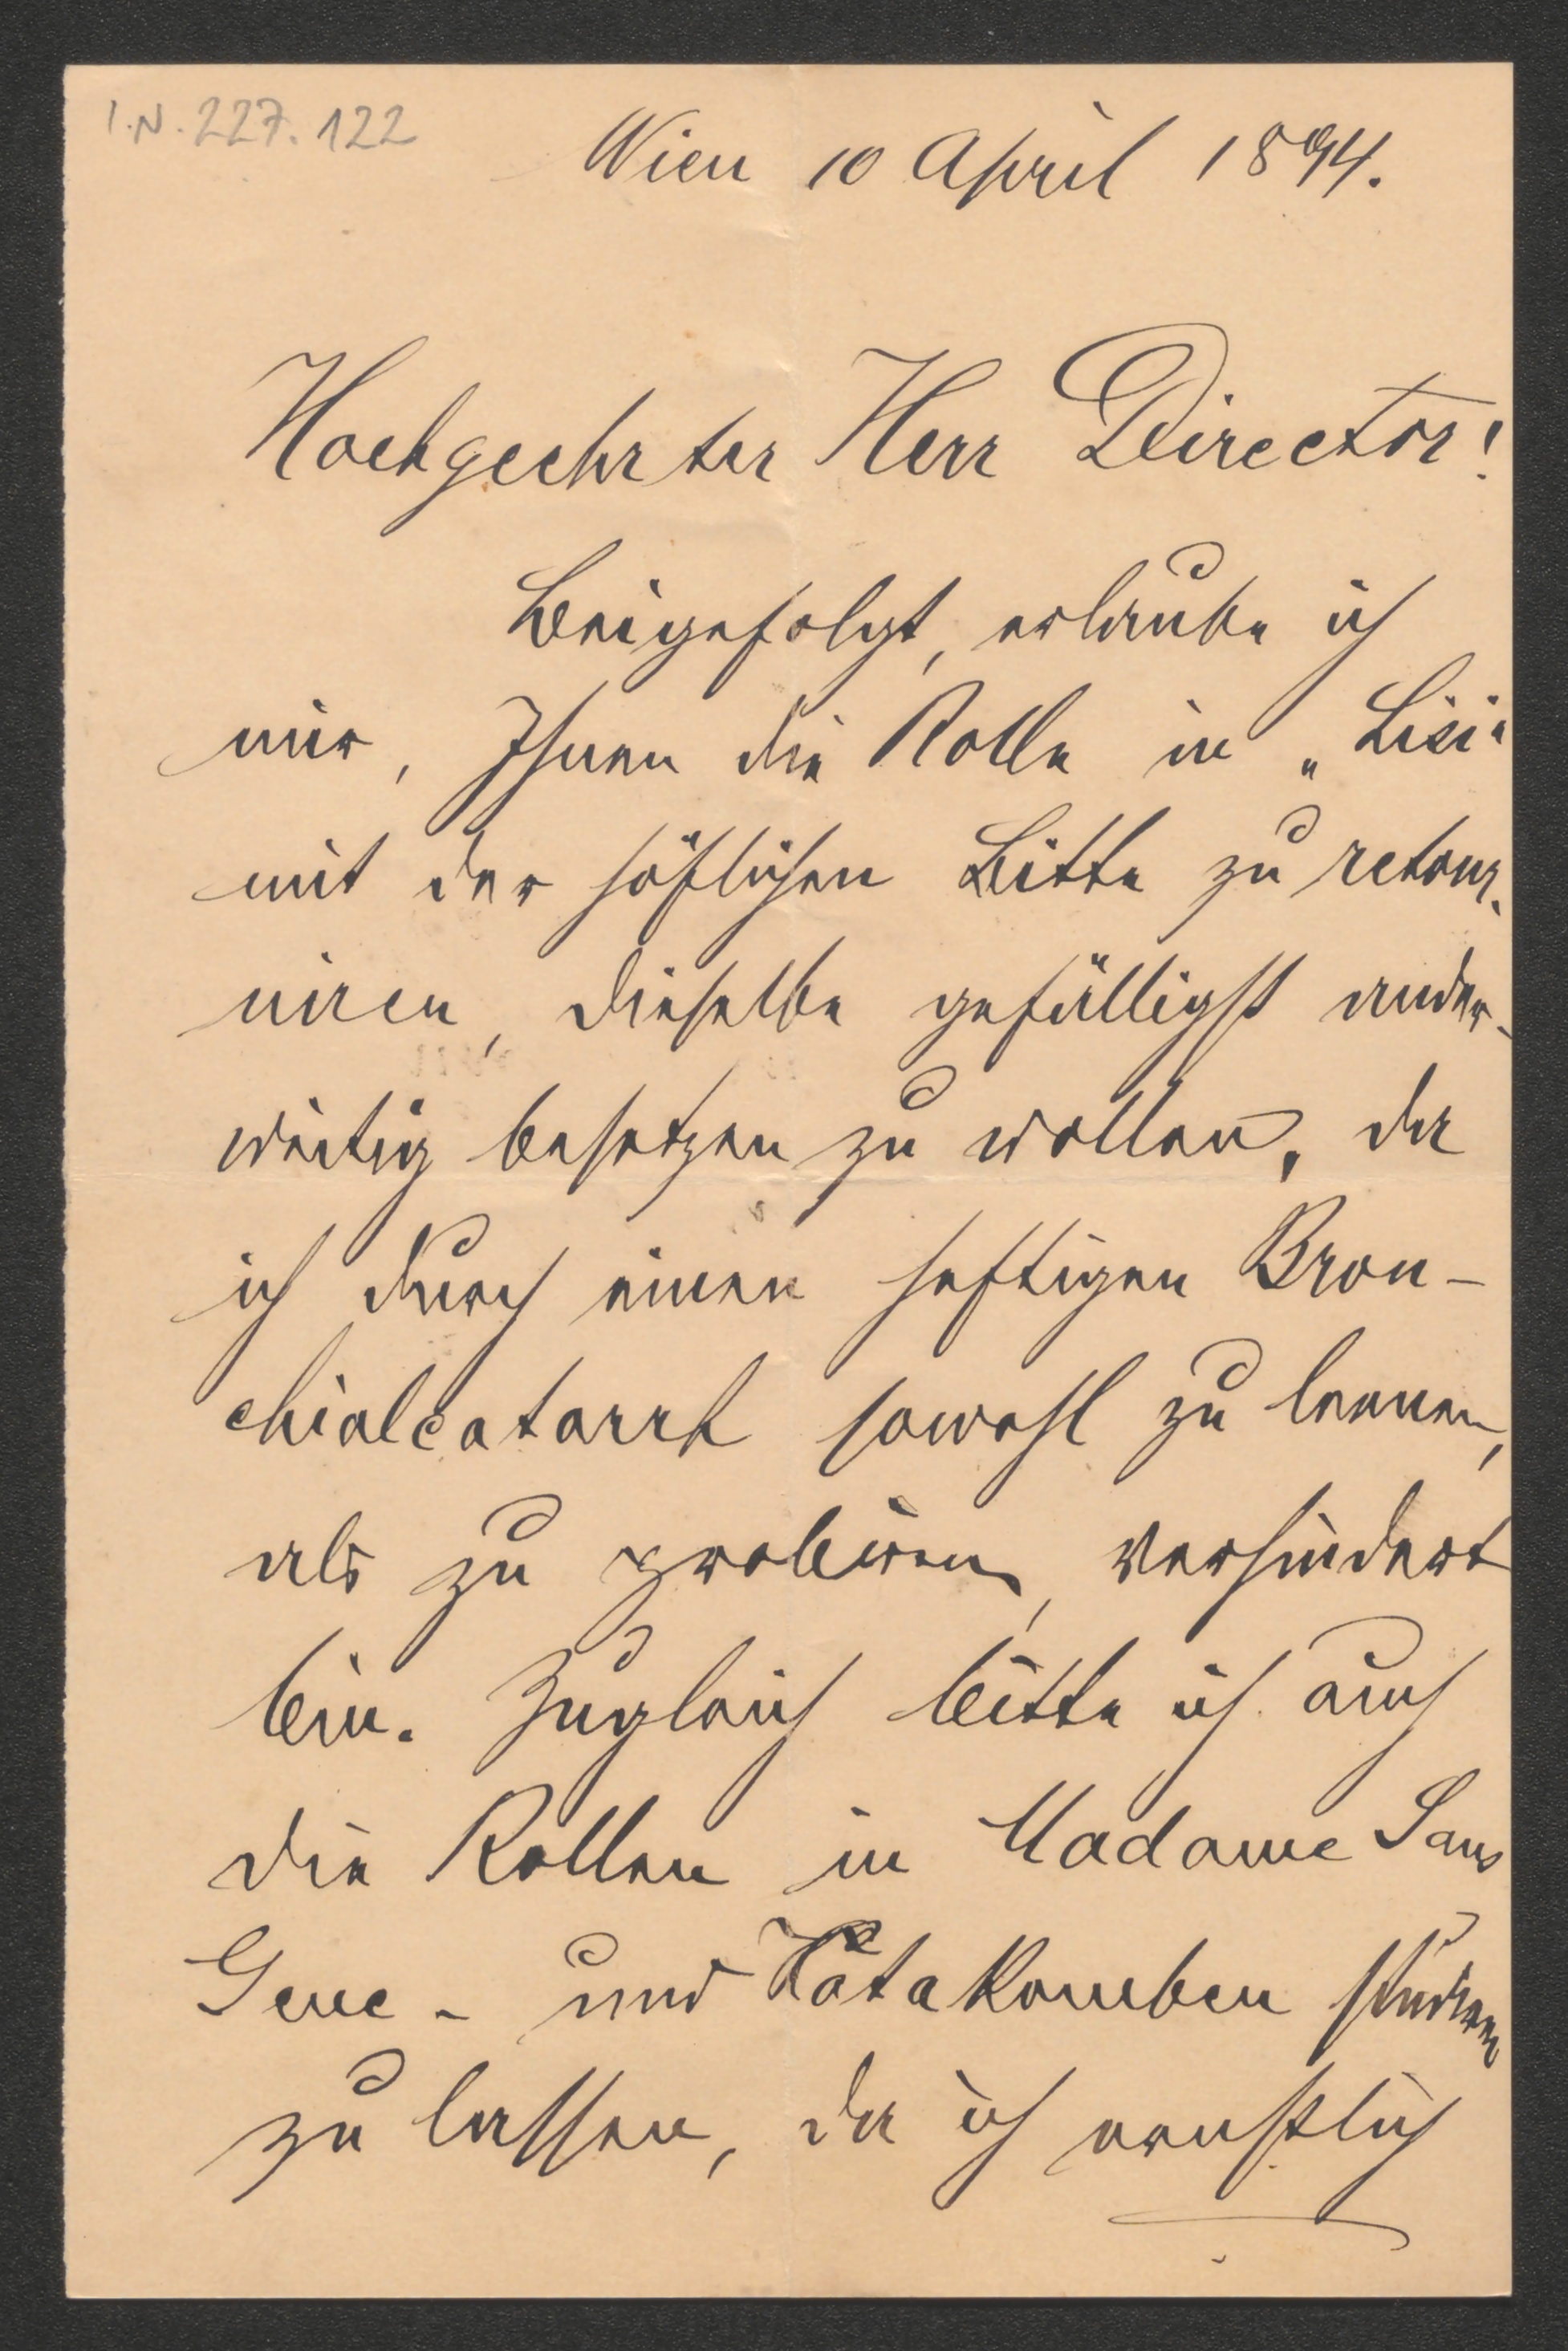 I.N. 227.122
Wien 10 April 1894.
Hochgeehrter Herr Director!
Beigefolgt, erlaube ich
mir, Ihnen die Rolle in „Lisi“
mit der höflichen Bitte zu retour-
niren, dieselbe gefälligst ander-
weitig besetzen zu wollen, da
ich durch einen heftigen Bron-
chialcatarrh sowohl zu lernen,
als zu probiren, verhindert
bin. Zugleich bitte ich auch
die Rollen in Madame Sans
Gene - und Katakomben
zu lassen, da ich ernstlich